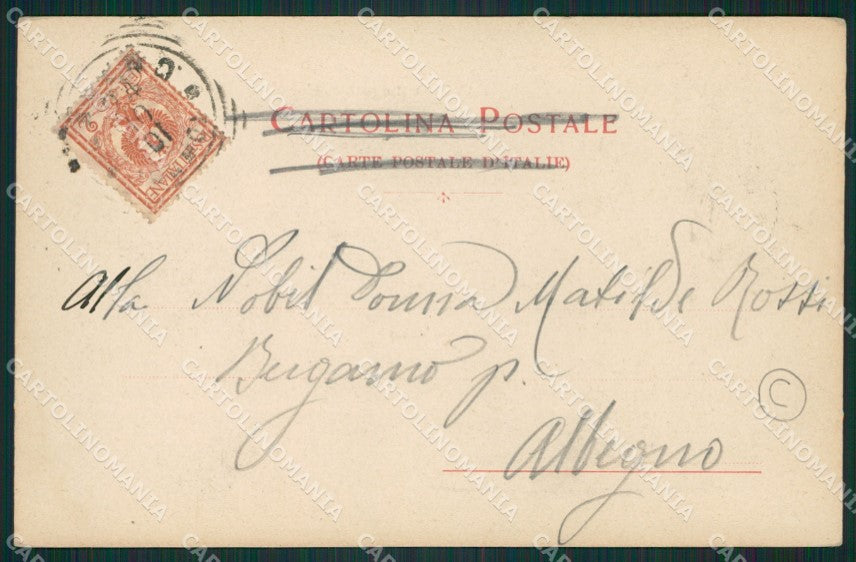 CARTOLINA POSTALE
(CARTE POSTALE D'ITALIE)
Alla Nobil Donna Matilde Rossi
Bergamo p.
Albegno
C
CARTOLINOMANIA